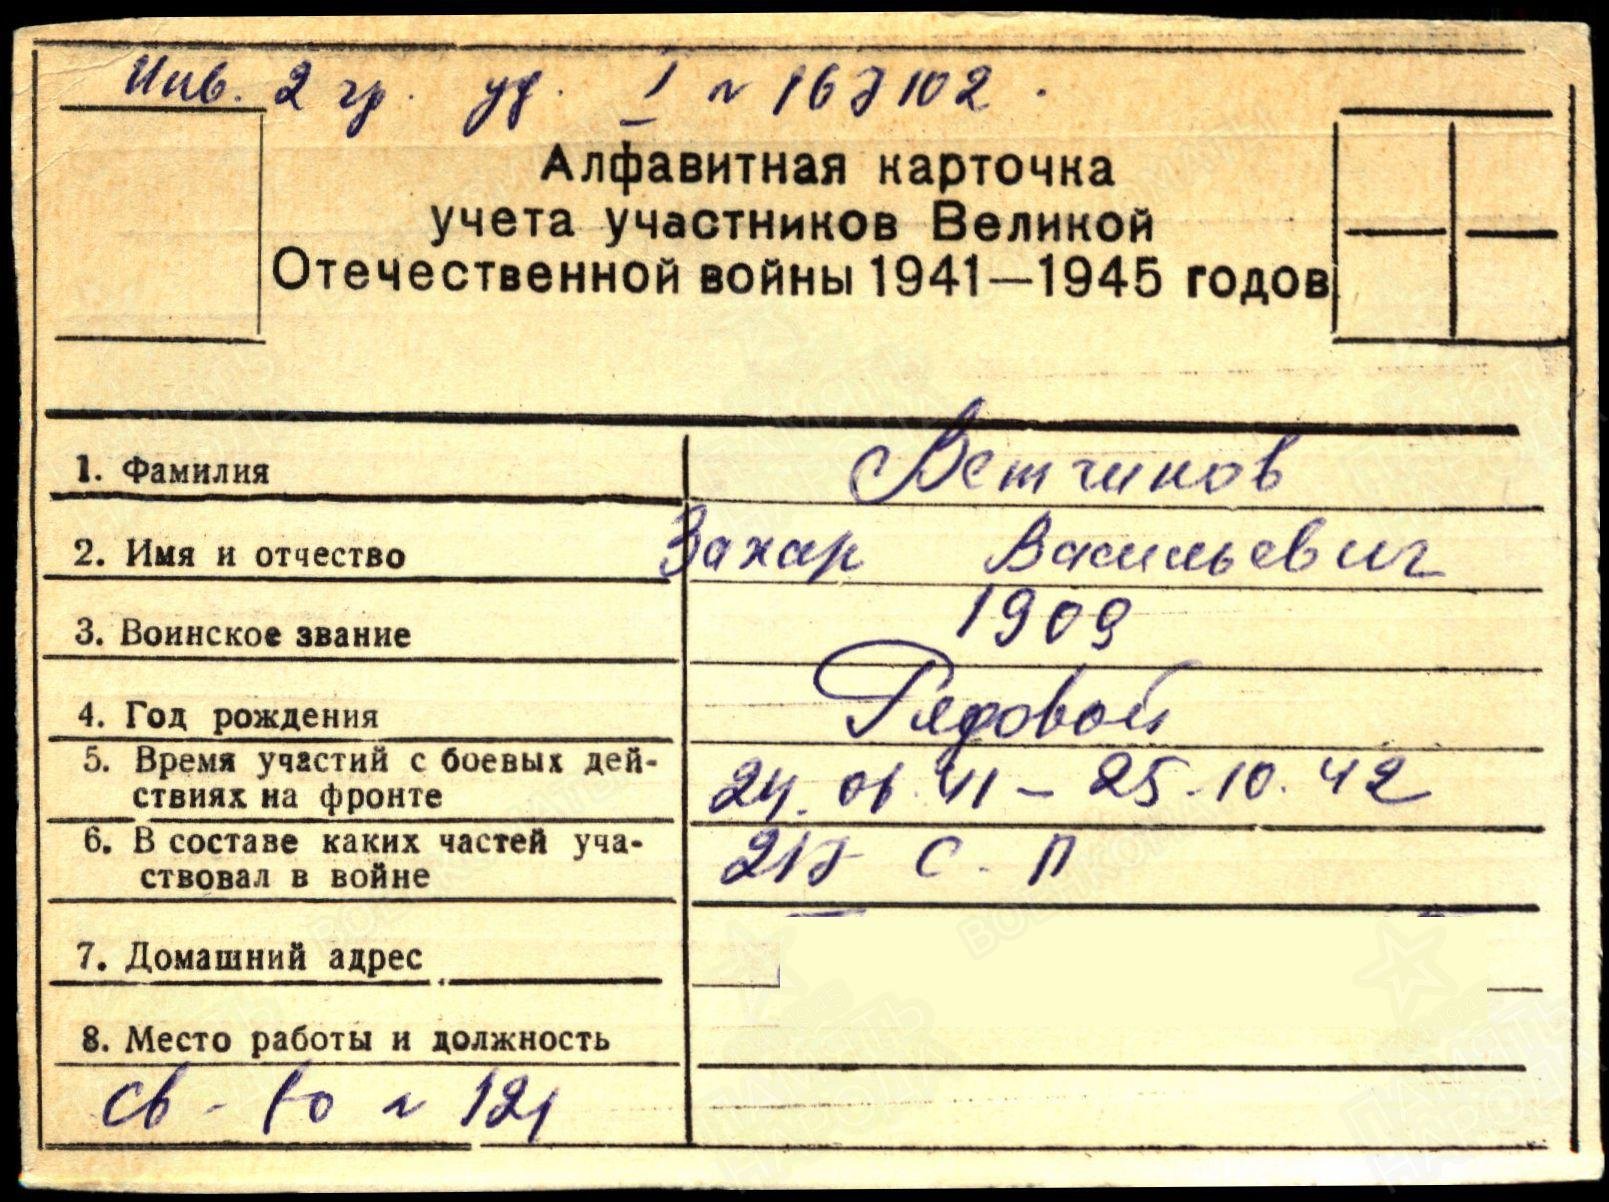 Инв. 2 гр. уд. I № 167102.
Алфавитная карточка
учета участников Великой
Отечественной войны 1941—1945 годов
1. Фамилия Ветчинов
2. Имя и отчество Захар Васильевич
3. Воинское звание 1909
4. Год рождения Рядовой
5. Время участий с боевых дей-
ствиях на фронте 24.06.41 – 25.10.42
6. В составе каких частей уча-
ствовал в войне 217 с. п
7. Домашний адрес
8. Место работы и должность
св-во № 121